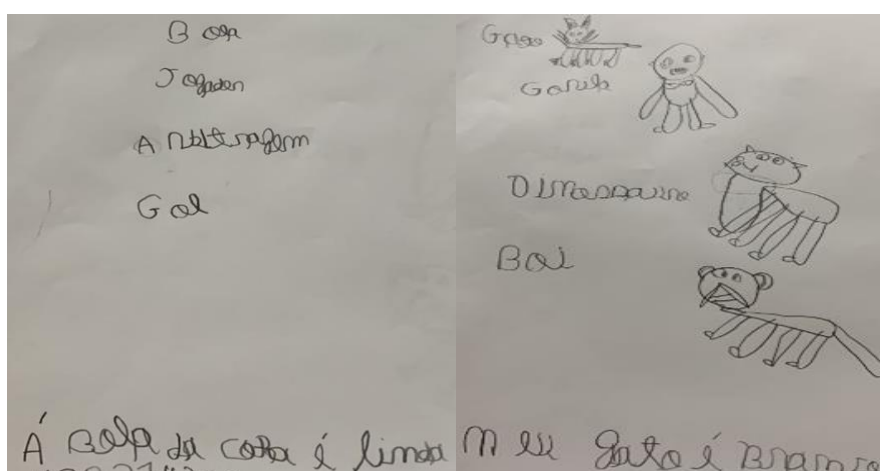 Bola
Jogador
Arbitragem
Gol
Á Bola da copa é linda
Gago
Gorila
Dinossauro
Boi
Meu gato é Branco